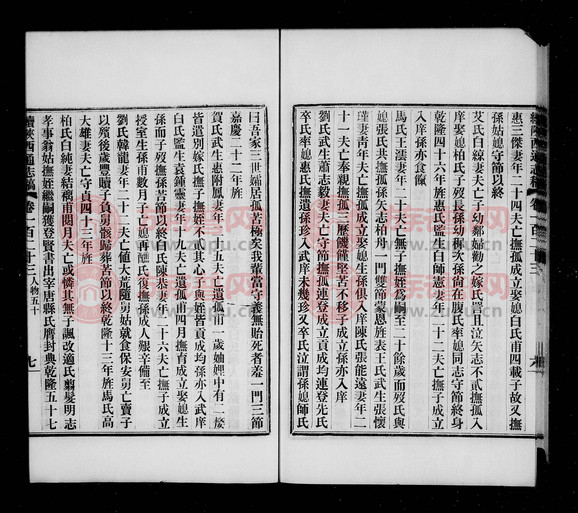 惠三傑妻年二十四夫亡撫孤成立娶媳白氏甫四載子故又撫
孫姑媳守節以終
艾氏白線妻夫亡子幼鄰婦勸之嫁氏詈且泣矢志不貳撫孤入
庠娶媳柏氏子歿長孫幼穉次孫尚在腹氏率媳同志守節終身
乾隆四十六年旌惠氏監生白師憲妻年二十二夫亡撫子成立
入庠孫亦食餼
馬氏王濡妻年二十夫亡無子撫姪爲嗣至二十餘歲而歿氏與
媳張氏共撫孤孫矢志柏舟一門雙節蒙恩旌表王氏武生張懷
瑾妻青年夫亡撫孤成立娶媳生孫俱入庠陳氏張能遠妻年二
十一夫亡奉親撫孤三歷饑饉堅苦不移子成立孫亦入庠
劉氏武生惠妻夫亡守節撫孤連登成立貢成均連登先氏
卒氏率媳惠氏撫遺孫珍入武庠未幾珍又卒氏泣謂孫媳師氏
曰吾家三世孀居孤苦極矣我輩當守義無貽死者羞一門三節
嘉慶二十二年旌
賀氏武生惠附鳳妻年二十五夫亡遺孤甫一歲妯娌中有二嫠
皆遺別嫁氏撫子撫姪不貳其心子與姪皆貢成均孫亦入武庠
白氏監生袁鍾靈妻年十七夫亡遺孤甫四月撫育成立娶媳生
孫而子歿撫孫苦節以終白氏陳恭妻年二十六夫亡撫子成立
授室生孫甫數月子亡媳再醮氏復撫孫成人艱辛備至
劉氏韓龍妻年二十夫亡値大荒隨舅姑就食保安舅亡賣子
以殯後歲豐贖子負舅骸歸葬苦節以終乾隆十三年旌馬氏高
大雄妻夫亡守貞四十三年旌
柏氏白純妻結褵甫閱月夫亡或憐其無子諷改適氏翦髮明志
孝事翁姑撫姪繼嗣獲登賢書出宰唐縣氏膺封典乾隆五十七
續陝西通志稿 卷一百二十三 人物五十 七